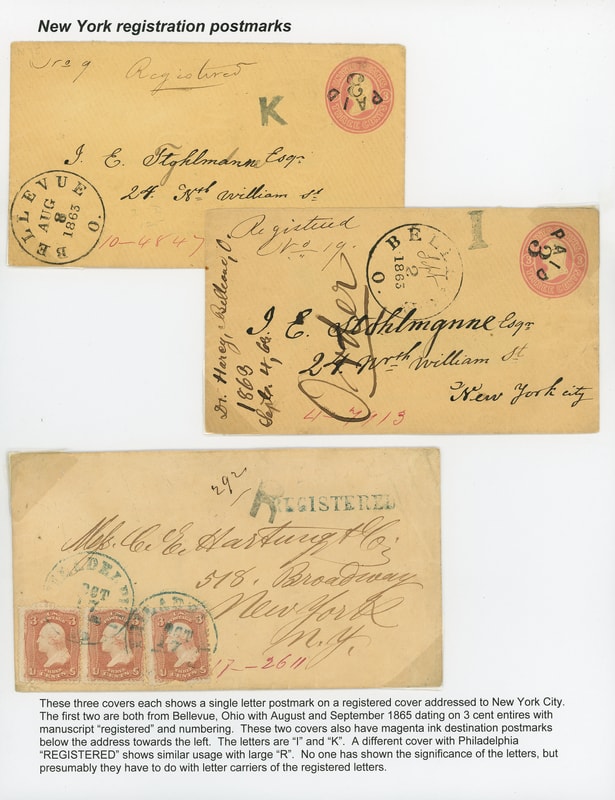 New York registration postmarks
No 9
Registered
PAID
3
K
BELLEVUE O.
AUG
8
1863
J. E. Stohlmanne Esqr.
24. Nth William St
10-4847
Registered
No 19.
BELL
O.
Sept
2
1863
I
PAID
3
Dr. Harcy, Bellevue, O
1863
Septr. 4, 63.
Order
J. E. Stohlmanne Esqr
24 Nrth William St
New York city
4-7113
292
R
REGISTERED
Mess. C. E. Hartung & Co
518. Broadway
New York
N.Y.
OCT
OCT
3 3
3 3
3 3
17-2611
These three covers each shows a single letter postmark on a registered cover addressed to New York City.
The first two are both from Bellevue, Ohio with August and September 1865 dating on 3 cent entires with
manuscript “registered” and numbering. These two covers also have magenta ink destination postmarks
below the address towards the left. The letters are “I” and “K”. A different cover with Philadelphia
“REGISTERED” shows similar usage with large “R”. No one has shown the significance of the letters, but
presumably they have to do with letter carriers of the registered letters.